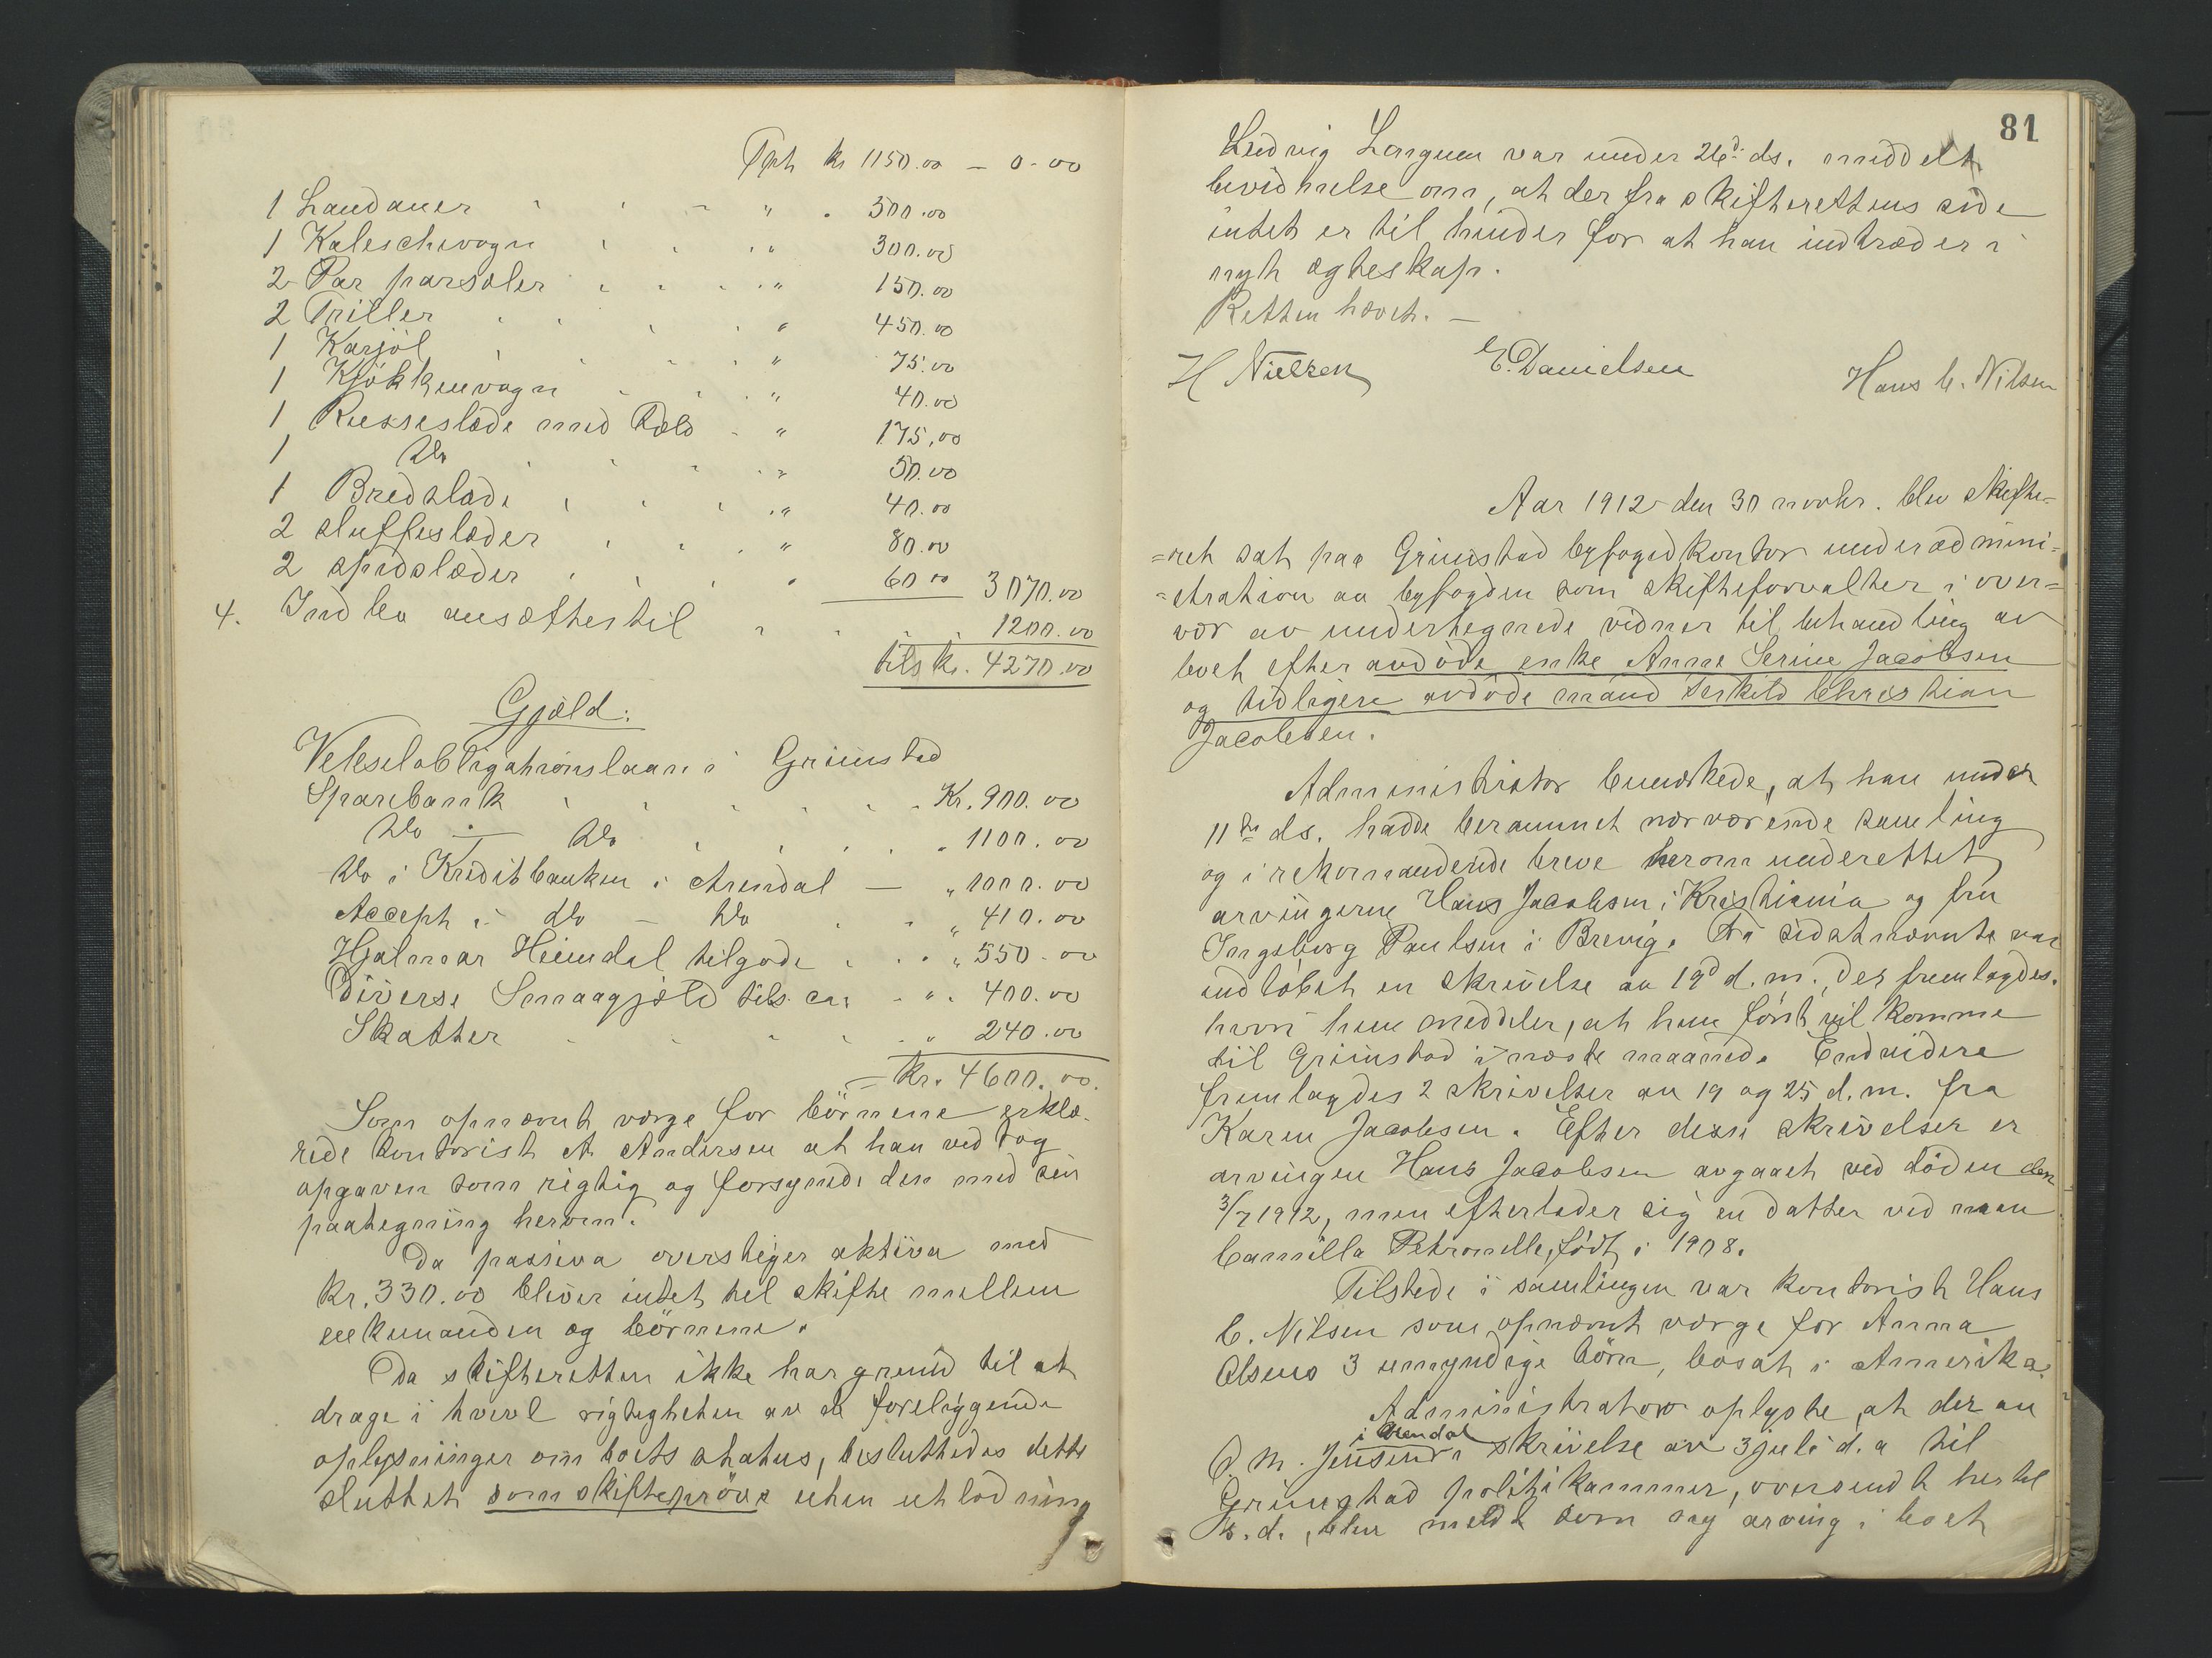 Tprt kr 1150.00 - 0-00
1 Landauer " 500.00
1 Kaleschevogn " 300.00
2 Par parsæler " 150.00
2 Triller " 450.00
1 Karjol " 75.00
1 Kjøkkenvogn " 40.00
1 Russeslæde med Fæld " 175,00
1 Do " 50.00
1 Bredslæde " 40.00
2 sluffeslæder " 80.00
2 spidslæder " 60 00 3070.00
4. Indbo ansættes til 1200.00
tils kr. 4270.00
Gjæld:
Vekselobligationslaan i Grimstad
Sparebank Kr. 900.00
Do - Do " 1100.00
Do i Kreditbanken i Arendal — " 1000.00
Accept i Do - Do " 410.00
Hjalmar Heimdal tilgode " 550-00
Diverse Smaagjæld tils. ca. " 400.00
Skatter " 240.00
- Kr. 4600.00.
Som opnævnt værge for børnene erklæ-
rede kontorist A. Andersen at han vedtog
opgaven som rigtig og forsynede den med sin
paategning herom.
Da passiva overstiger aktiva med
kr. 330.00 bliver intet til skifte mellem
enkemanden og børnene.
Da skifteretten ikke har grund til at
drage i tvevl rigtigheten av de foreliggende
oplysninger om boets status, besluttedes dette
sluttet som skifteprøve uten utlodning
81
Ludvig Longum var under 26d. ds. meddelt
bevidnelse om, at der fra skifterettens side
intet er til hinder for at han indtræder i
nyt ægteskap.
Retten hævet. —
H Nielsen E. Danielsen Hans C. Nilsen
Aar 1912 den 30 novbr. blev skifte-
=ret sat paa Grimstad byfogedkontor under admini=
=stration av byfogden som skifteforvalter i over=
vær av undertegnede vidner til behandling av
boet efter avdøde enke Anne Serine Jacobsen
og tidligere avdøde mand Terkild Christian
Jacobsen.
Administrator bemerkede, at han under
11te ds. hadde berammet nærværende samling
og i rekomanderede breve herom underettet
arvingerne Hans Jacobsen i Kristiania og fru
Ingeborg Paulsen i Brevig. Fra sidstnævnte var
indløbet en skrivelse av 19d d.m., der fremlagdes.
hvori hun meddeler, at hun først vil komme
til Grimstad i næste maaned. Endvidere
fremlagdes 2 skrivelser av 19 og 25 d.m. fra
Karen Jacobsen. Efter disse skrivelser er
arvingen Hans Jacobsen avgaaet ved døden den
3/7 1912, men efterlader sig en datter ved navn
Camilla Petronelle, født i 1908.
Tilstede i samlingen var kontorist Hans
C. Nilsen som opnævnt værge for Anna
Olsens 3 umyndige børn, bosat i Amerika.
Administrator oplyste, at der av
i Arendal
P. M. Jensens skrivelse av 3 juli d.a til
Grimstad politikammer, oversendt hertil
s.d., blev meldt som ny arving i boet